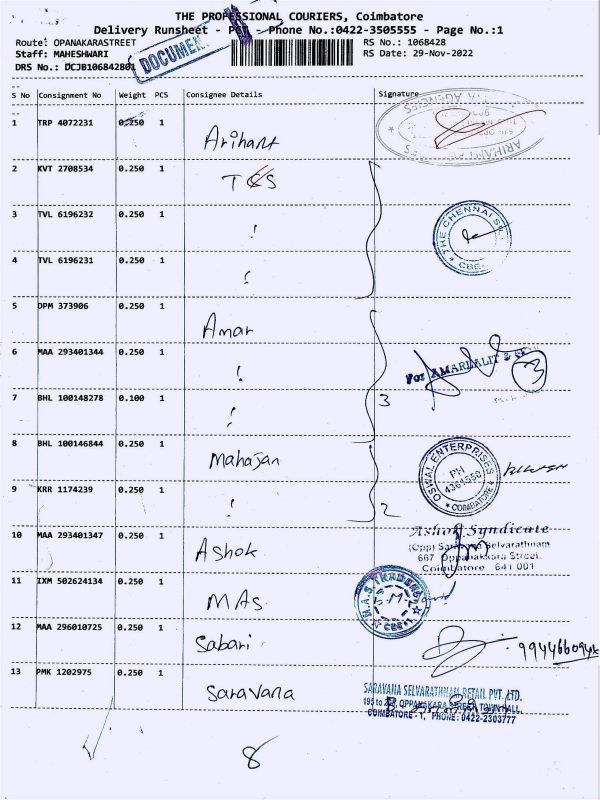 THE PROFESSIONAL COURIERS, Coimbatore
Delivery Runsheet - Phone No.:0422-3505555 - Page No.:1
Route: OPANAKARASTREET RS No.: 1068428
Staff: MAHESHWARI RS Date: 29-Nov-2022
DRS No.: DCJB106842801
DOCUMENT
S No Consignment No Weight PCS Consignee Details Signature
1 TRP 4072231 0.250 1 Arihant
ARIHANT AGENCIES
2 KVT 2708534 0.250 1 TCS
3 TVL 6196232 0.250 1 !
THE CHENNAI
CBE
4 TVL 6196231 0.250 1 !
5 DPM 373906 0.250 1 Amar
6 MAA 293401344 0.250 1 !
For AMARLALIT
3
7 BHL 100148278 0.100 1 !
3
8 BHL 100146844 0.250 1 Mahajan
OSWAL ENTERPRISES
PH
COIMBATORE
9 KRR 1174239 0.250 1 !
2
10 MAA 293401347 0.250 1 Ashok
Ashok Syndicate
(Opp) Selvarathnam
667 Oppanakkara Street,
Coimbatore 641 001
11 IXM 502624134 0.250 1 MAS
M.A.S. TRADERS
CBE-1
12 MAA 296010725 0.250 1 Sabari
13 PMK 1202975 0.250 1 Saravana
SARAVANA SELVARATHNAM RETAIL PVT. LTD.
OPPANAKARA STREET, TOWN HALL,
COIMBATORE - 1, PHONE: 0422-2303777
8